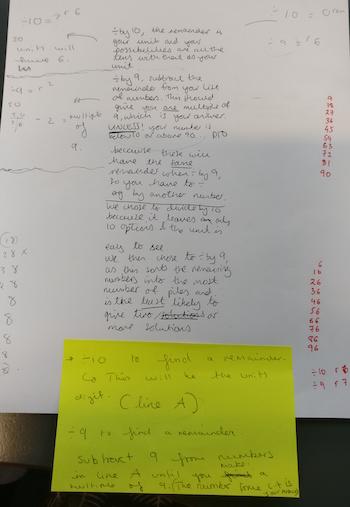 ÷10 = → r 6
so
units will
have 6.
÷10 = 0 rem
÷ 9 = r6
÷ by 10, the remainder is
your unit and your
possibilities are all the
tens with that as your
unit
÷ by 9, subtract the
remainder from your list
of numbers. This should
give you one multiple of
9, which is your answer.
UNLESS! your number is
below 10 or above 90 .. PTO
because these will
have the same
remainder when ÷ by 9,
so you have to ÷
eg by another number.
We chose to divide by 10
because it leaves only
10 options & the unit is
easy to see
We then chose to ÷ by 9,
as this sorts the remaining
numbers into the most
number of piles and
is the least likely to
give two or
more solutions
÷ 9 = r 2
50
- 2 = multiple
of
9.
9
18
27
36
45
54
63
72
81
90
6
16
26
36
46
56
66
76
86
96
÷10 r 8
÷9 r 7
(18)
28 x
38
48
8
8
8
8
8
→ ÷10 to find a remainder.
↳ This will be the units
digit. (line A)
÷9 to find a remainder
Subtract 9 from numbers
in line A until you make a
multiple of 9. (The number
your number)